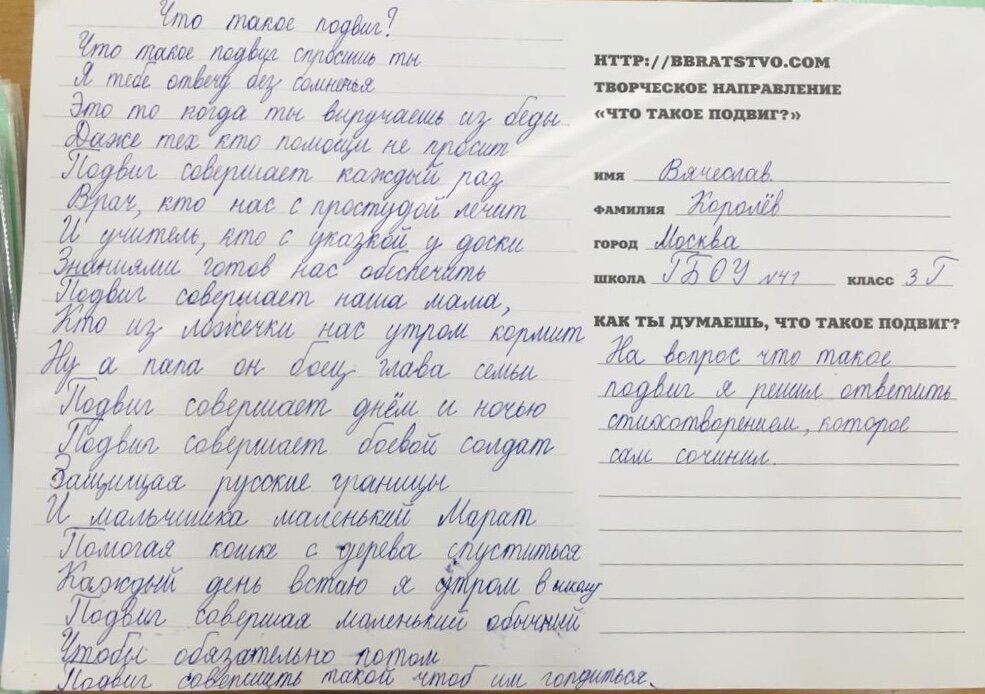 Что такое подвиг?
Что такое подвиг спросишь ты
Я тебе отвечу без сомненья
Это то когда ты выручаешь из беды
Даже тех кто помощи не просит
Подвиг совершает каждый раз
Врач, кто нас с простудой лечит
И учитель, кто с указкой у доски
Знаниями готов нас обеспечить
Подвиг совершает наша мама,
Кто из ложечки нас утром кормит
Ну а папа он боец глава семьи
Подвиг совершает днём и ночью
Подвиг совершает боевой солдат
Защищая русские границы
И мальчишка маленький Марат
Помогая кошке с дерева спуститься
Каждый день встаю я утром в школу
Подвиг совершая маленький обычный
Чтобы обязательно потом
Подвиг совершить такой чтоб им гордиться.
HTTP://BBRATSTVO.COM
ТВОРЧЕСКОЕ НАПРАВЛЕНИЕ
«ЧТО ТАКОЕ ПОДВИГ?»
ИМЯ Вячеслав
ФАМИЛИЯ Королёв
ГОРОД Москва
ШКОЛА ГБОУ №41 КЛАСС 3 Г
КАК ТЫ ДУМАЕШЬ, ЧТО ТАКОЕ ПОДВИГ?
На вопрос что такое
подвиг я решил ответить
стихотворением, которое
сам сочинил.